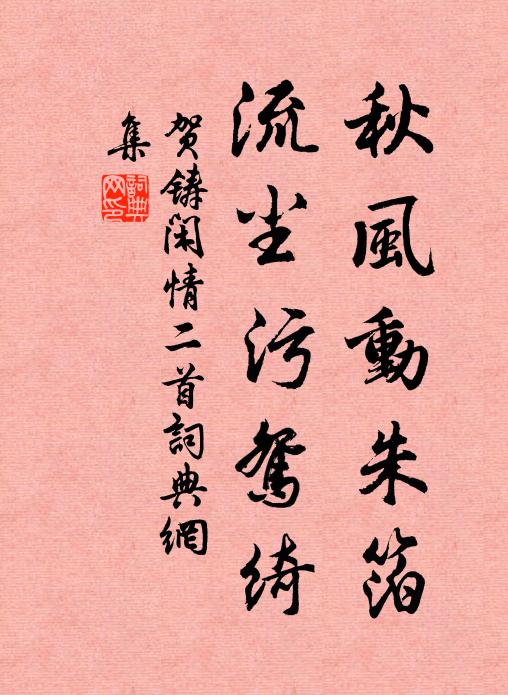 秋風動朱箔
流尘污鸳綺
贺鋳闲情二首詞典網
集
詞典網印